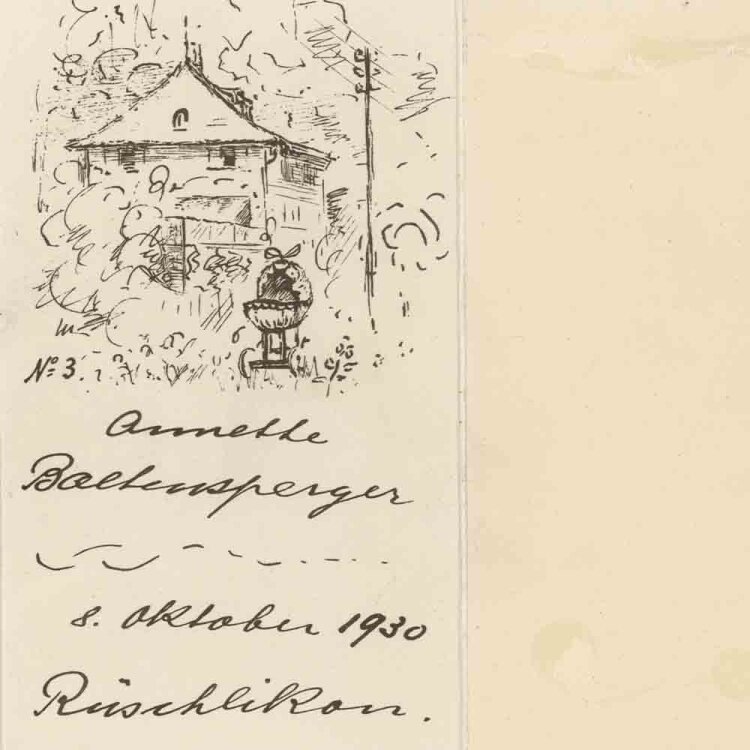 No 3.
Annette
Baltensperger
8. Oktober 1930
Rüschlikon.